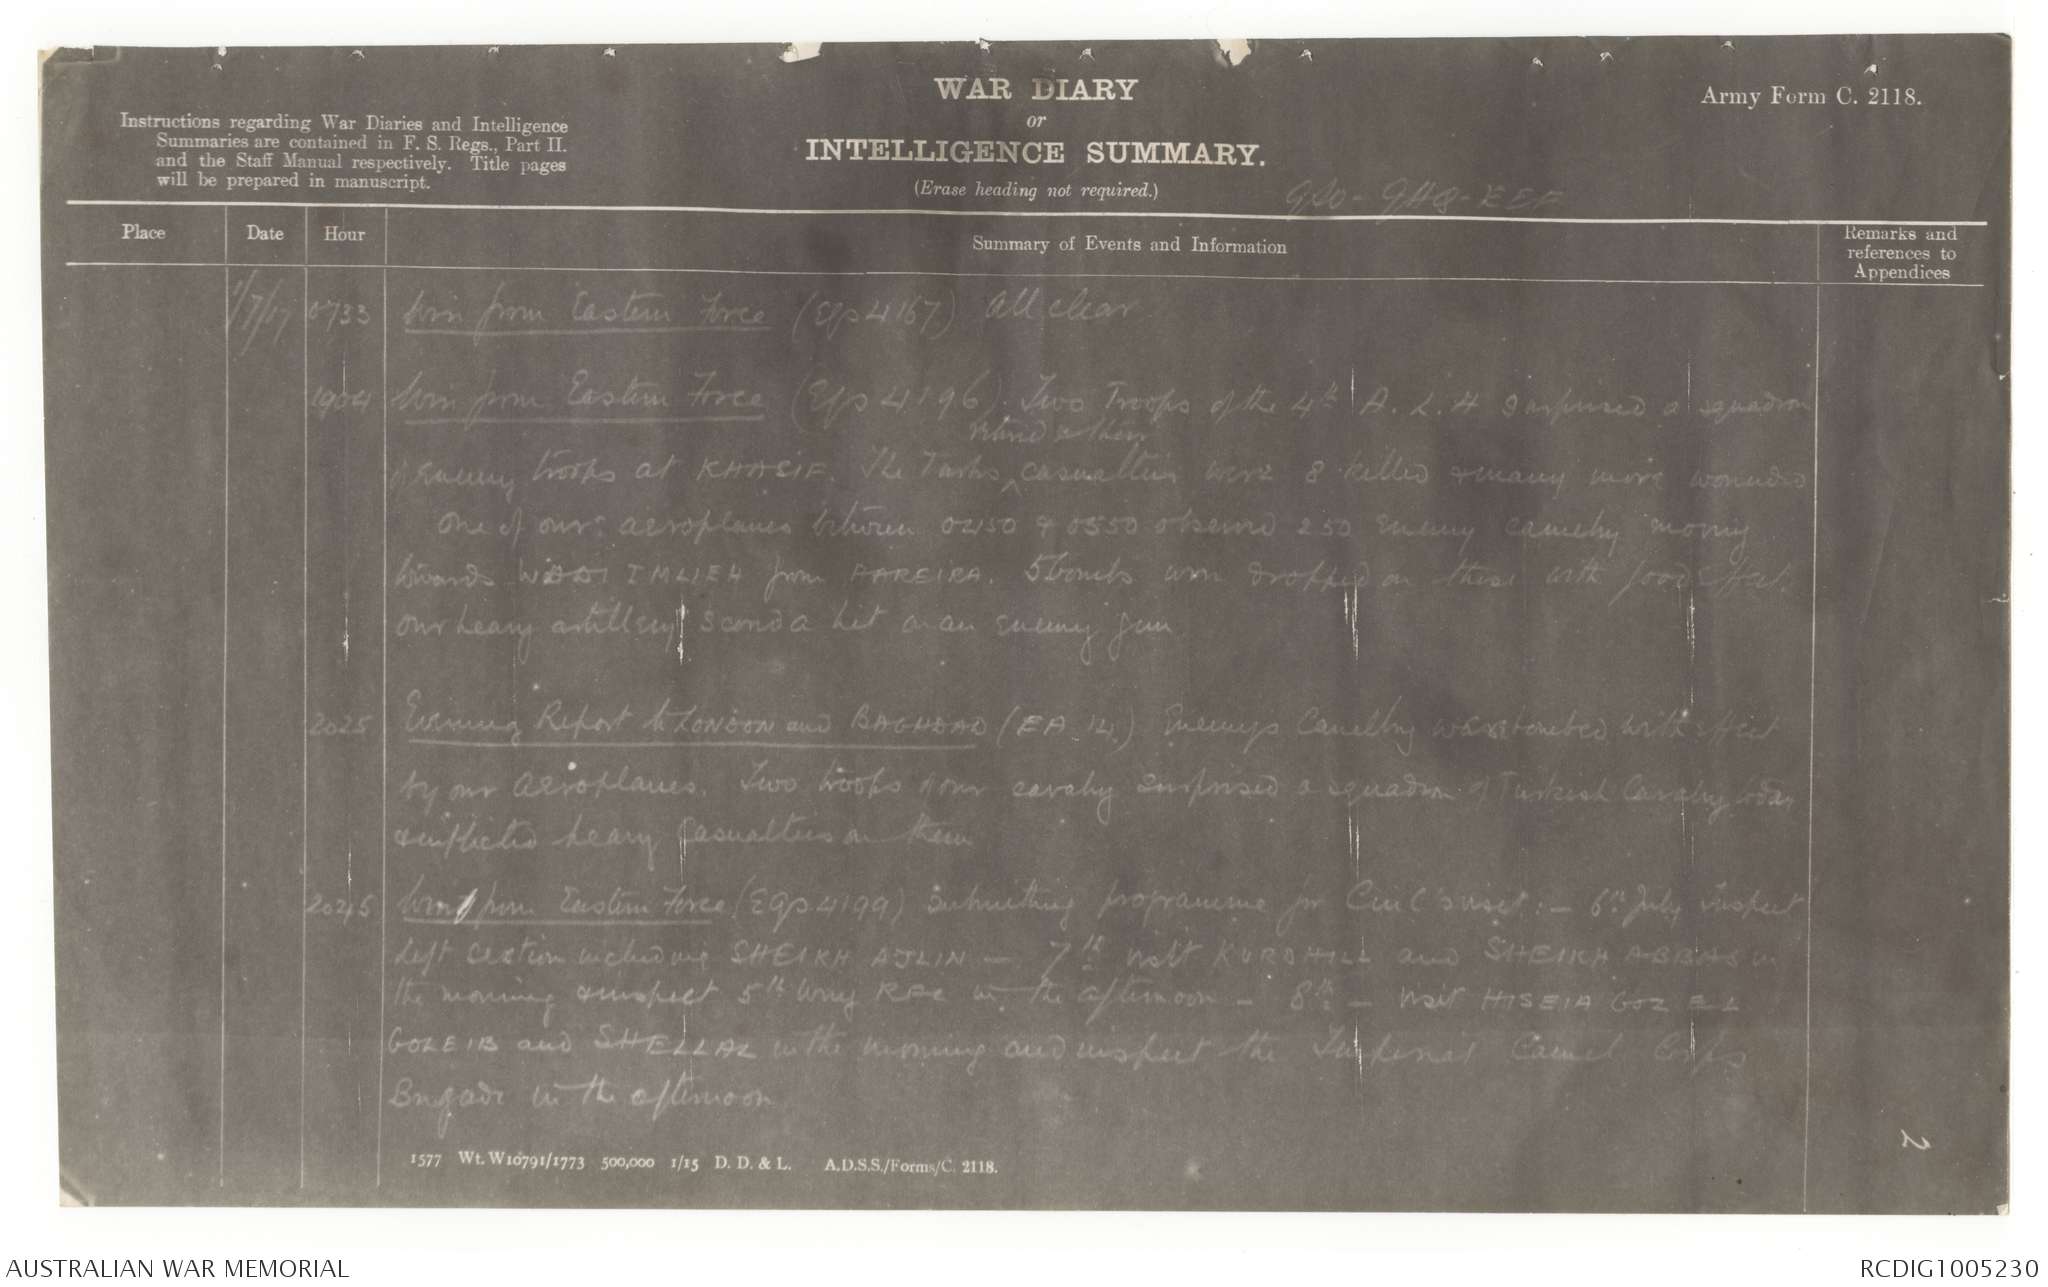 WAR DIARY
or
INTELLIGENCE SUMMARY.
(Erase heading not required.)
Army Form C. 2118.
Instructions regarding War Diaries and Intelligence
Summaries are contained in F. S. Regs., Part II.
and the Staff Manual respectively. Title pages
will be prepared in manuscript.
GSO - GHQ - EEF
Place
Date
Hour
Summary of Events and Information
Remarks and
references to
Appendices
1/7/17 0733 Wire from Eastern Force (EGS 4167) All clear
1904 Wire from Eastern Force (EGS 4196). Two Troops of the 4th A. L. H surprised a squadron
retired & their
of enemy troops at KHASIF. The Turks ^ casualties were 8 killed & many more wounded
One of our aeroplanes between 0450 & 0550 observed 250 enemy camelry moving
towards WADI IMLIEH from HAREIRA. 5 bombs were dropped on these with good effect.
Our heavy artillery scored a hit on an enemy gun
2025 Evening Report to LONDON and BAGHDAD (EA 14.) Enemys Camelry was bombed with effect
by our aeroplanes. Two troops of our cavalry surprised a squadron of Turkish Cavalry today
& inflicted heavy casualties on them
2045 Wire from Eastern Force (EGS 4199) submitting programme for C in C's visit: - 6th July inspect
left section including SHEIKH AJLIN - 7th visit KURD HILL and SHEIKH ABBAS in
the morning & inspect 5th Wing RFC in the afternoon - 8th - visit HISEIA GOZ EL
GOLEIB and SHELLAL in the morning and inspect the Imperial Camel Corps
Brigade in the afternoon
2
1577 Wt. W10791/1773 500,000 1/15 D. D. & L. A.D.S.S./Forms/C. 2118.
AUSTRALIAN WAR MEMORIAL
RCDIG1005230